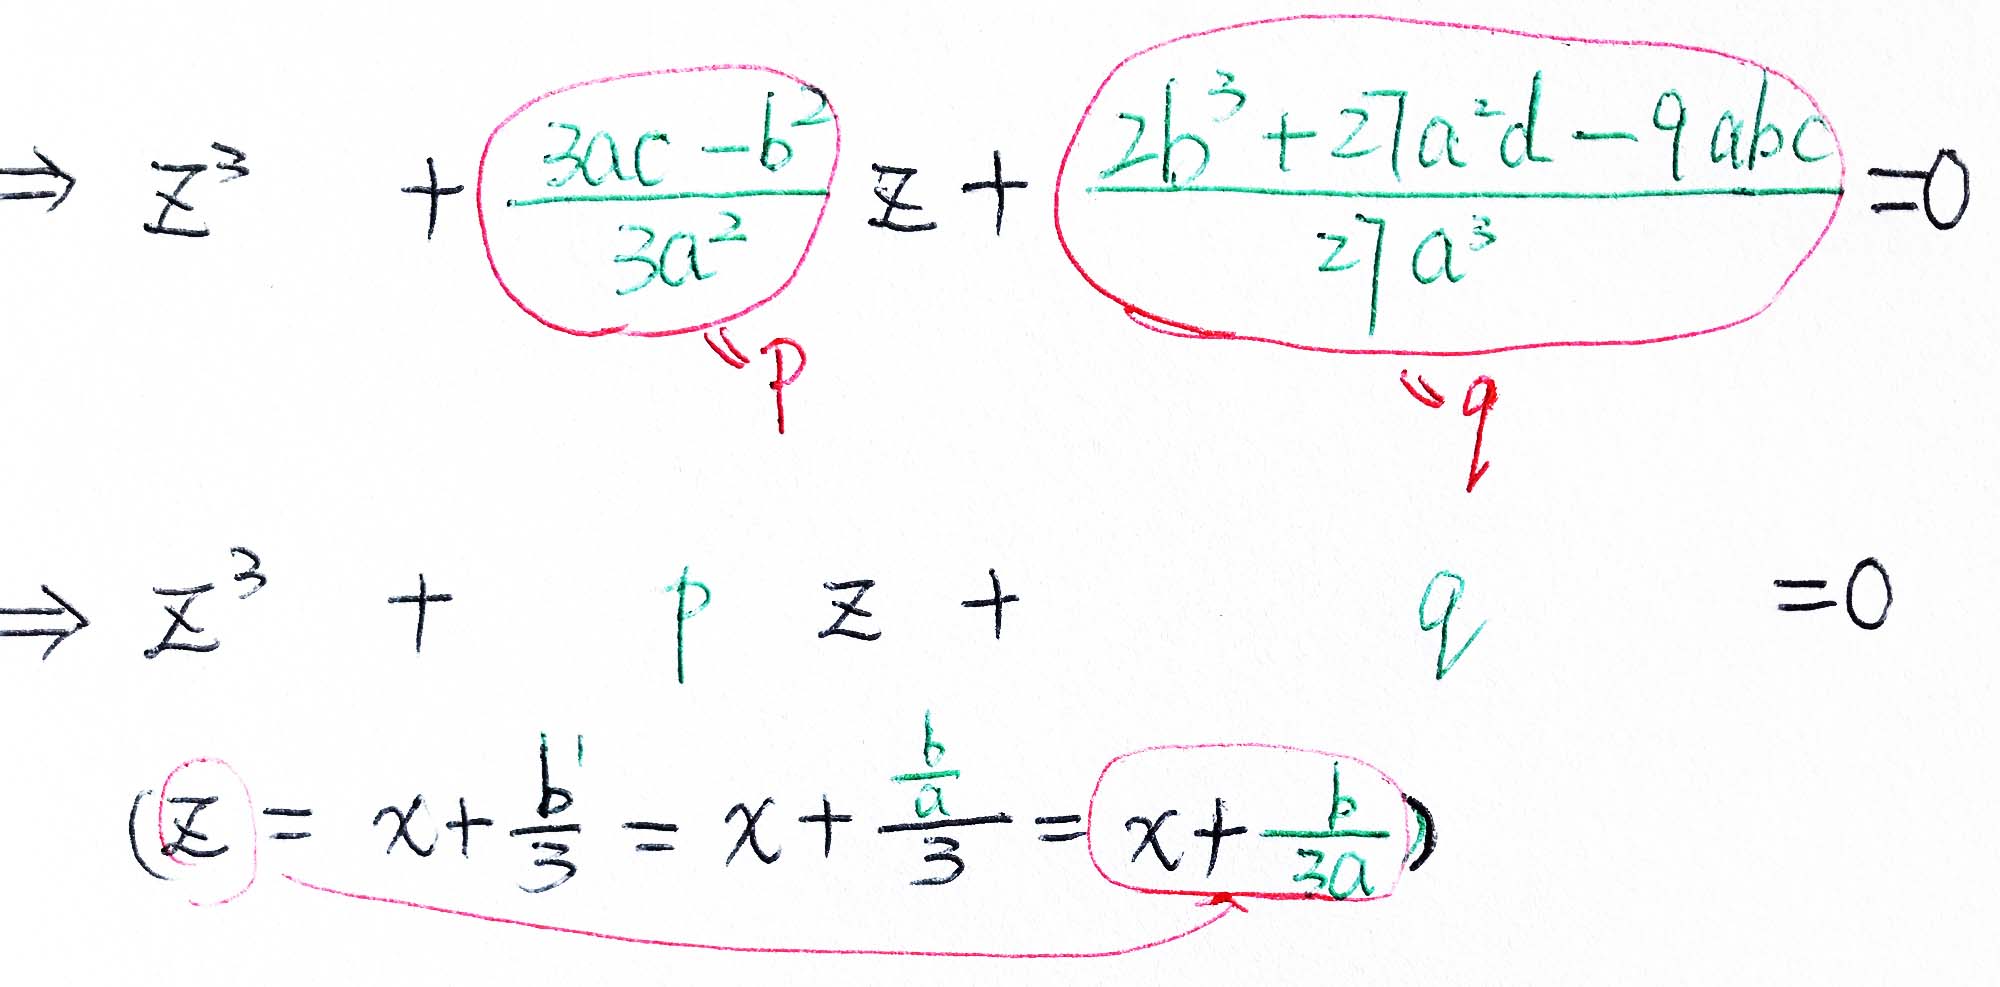 ⇒ z³ + (3ac − b²)/(3a²) z + (2b³ + 27a²d − 9abc)/(27a³) = 0
" p " q
⇒ z³ + p z + q = 0
(z = x + b'/3 = x + (b/a)/3 = x + b/(3a))